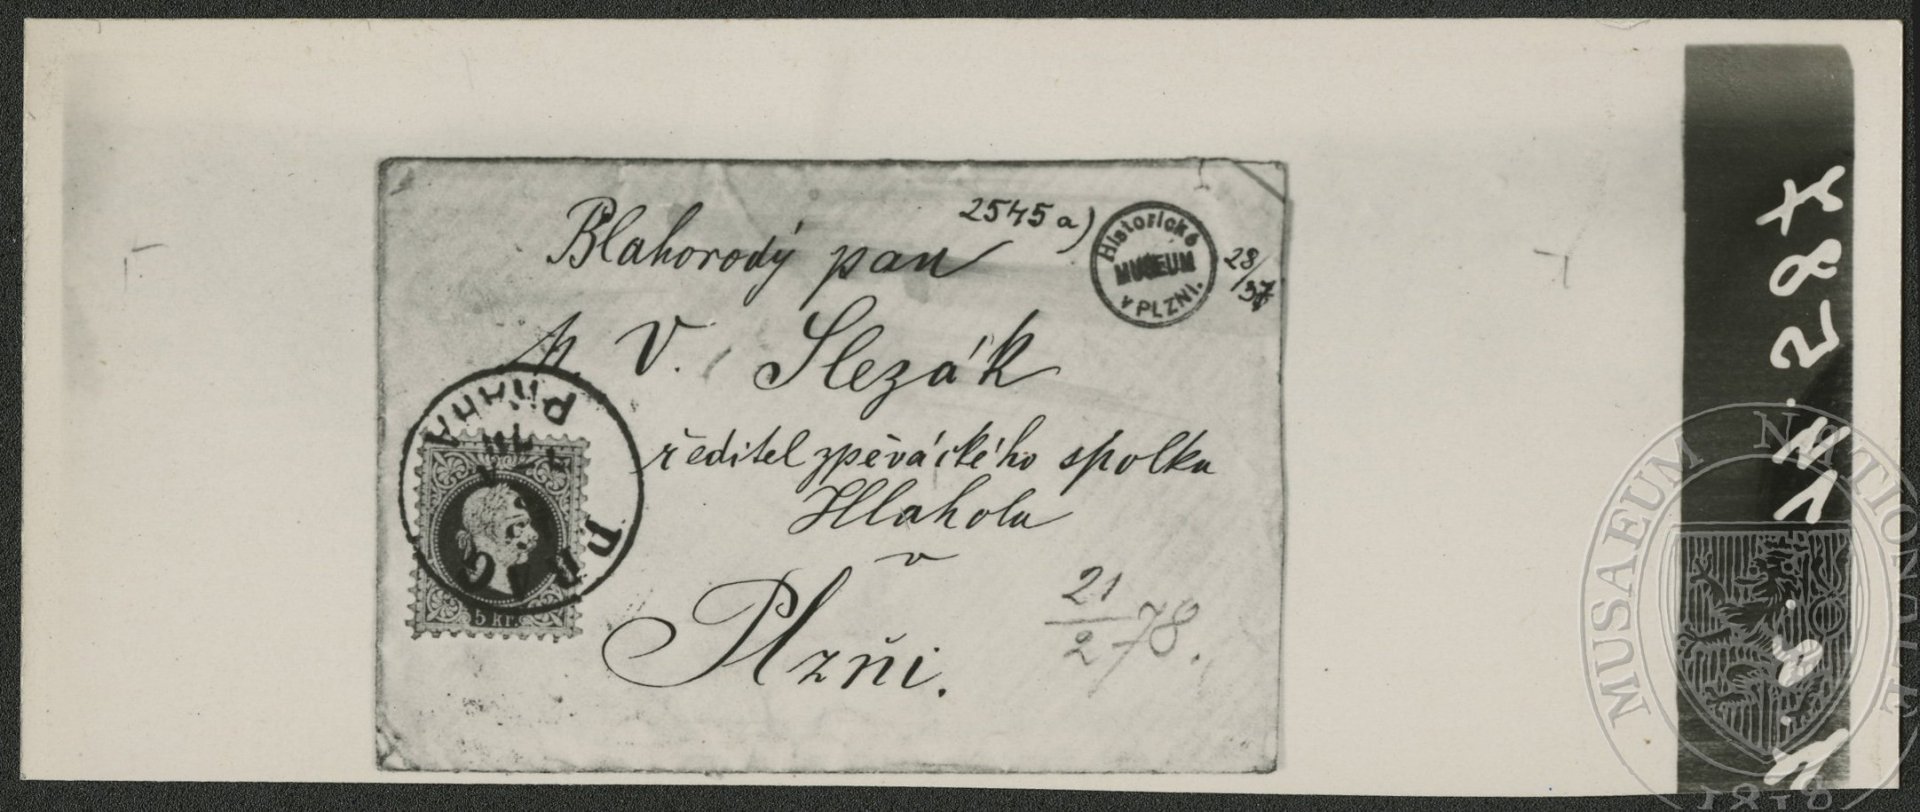 Blahorodý pan
2545 a)
Historické
MUSEUM
v PLZNI.
28/37
p. V. Slezák
ředitel zpěváckého spolku
Hlahola
v
Plzni.
21/2 78.
PRAHA
PRAG
5 kr.
287
MUSAEUM NATIONALE
1818